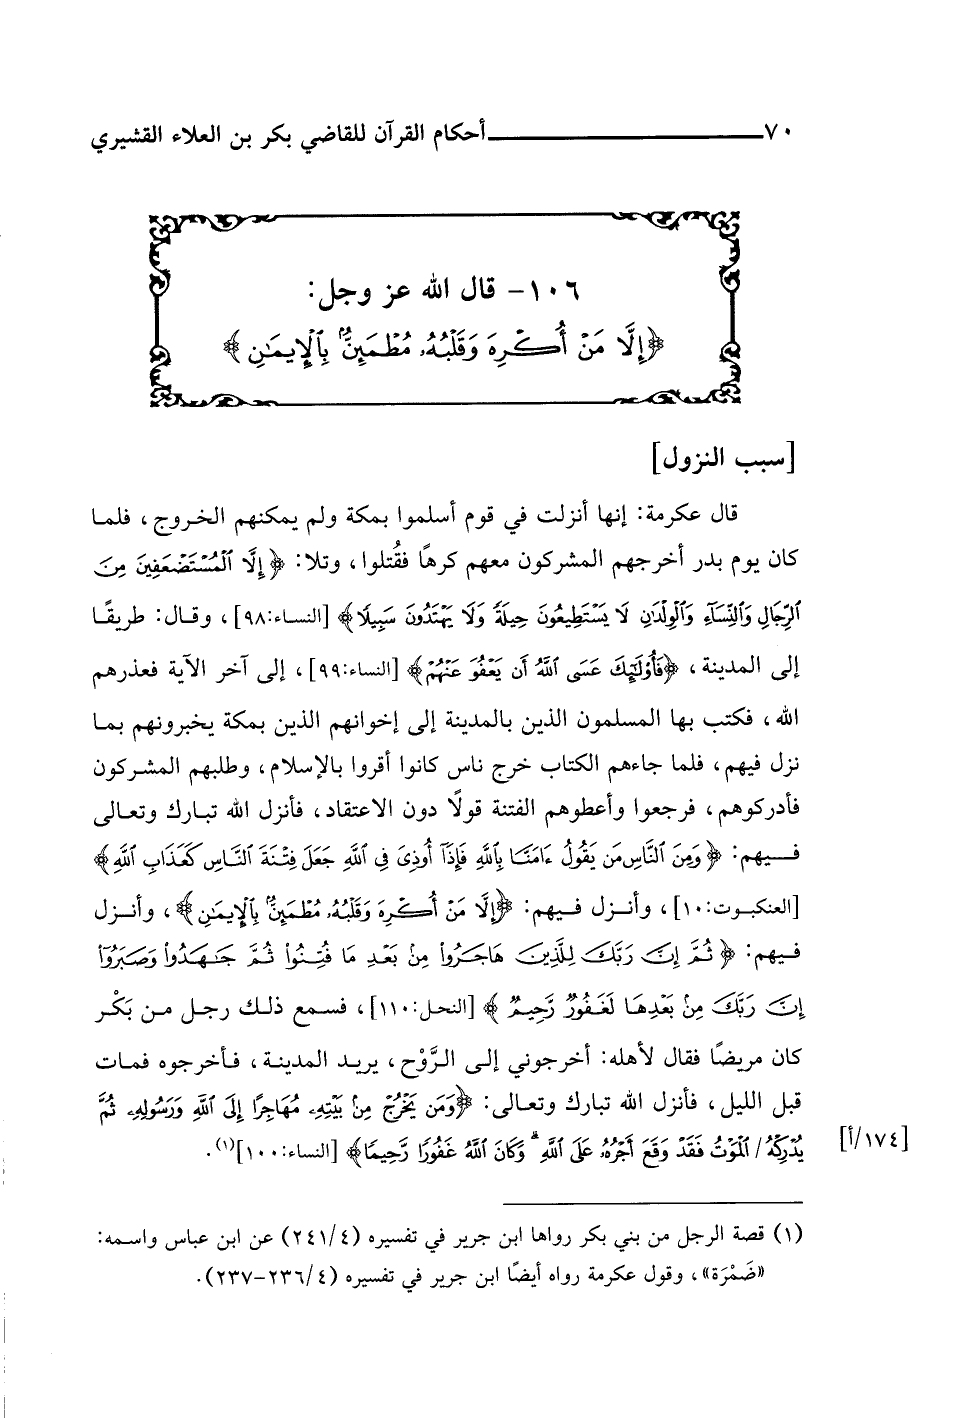 ٧٠ أحكام القرآن للقاضي بكر بن العلاء القشيري
١٠٦- قال الله عز وجل:
﴿إِلَّا مَنْ أُكْرِهَ وَقَلْبُهُۥ مُطْمَئِنٌّۢ بِٱلْإِيمَٰنِ﴾
[سبب النزول]
قال عكرمة: إنها أنزلت في قوم أسلموا بمكة ولم يمكنهم الخروج، فلما
كان يوم بدر أخرجهم المشركون معهم كرهًا فقُتلوا، وتلا: ﴿إِلَّا ٱلْمُسْتَضْعَفِينَ مِنَ
ٱلرِّجَالِ وَٱلنِّسَآءِ وَٱلْوِلْدَٰنِ لَا يَسْتَطِيعُونَ حِيلَةً وَلَا يَهْتَدُونَ سَبِيلًا﴾ [النساء:٩٨]، وقال: طريقًا
إلى المدينة، ﴿فَأُو۟لَٰٓئِكَ عَسَى ٱللَّهُ أَن يَعْفُوَ عَنْهُمْ﴾ [النساء:٩٩]، إلى آخر الآية فعذرهم
الله، فكتب بها المسلمون الذين بالمدينة إلى إخوانهم الذين بمكة يخبرونهم بما
نزل فيهم، فلما جاءهم الكتاب خرج ناس كانوا أقروا بالإسلام، وطلبهم المشركون
فأدركوهم، فرجعوا وأعطوهم الفتنة قولًا دون الاعتقاد، فأنزل الله تبارك وتعالى
فيهم: ﴿وَمِنَ ٱلنَّاسِ مَن يَقُولُ ءَامَنَّا بِٱللَّهِ فَإِذَآ أُوذِىَ فِى ٱللَّهِ جَعَلَ فِتْنَةَ ٱلنَّاسِ كَعَذَابِ ٱللَّهِ﴾
[العنكبوت:١٠]، وأنزل فيهم: ﴿إِلَّا مَنْ أُكْرِهَ وَقَلْبُهُۥ مُطْمَئِنٌّۢ بِٱلْإِيمَٰنِ﴾، وأنزل
فيهم: ﴿ثُمَّ إِنَّ رَبَّكَ لِلَّذِينَ هَاجَرُوا۟ مِنۢ بَعْدِ مَا فُتِنُوا۟ ثُمَّ جَٰهَدُوا۟ وَصَبَرُوٓا۟
إِنَّ رَبَّكَ مِنۢ بَعْدِهَا لَغَفُورٌ رَّحِيمٌ﴾ [النحل:١١٠]، فسمع ذلك رجل من بَكْر
كان مريضًا فقال لأهله: أخرجوني إلى الرَّوْح، يريد المدينة، فأخرجوه فمات
قبل الليل، فأنزل الله تبارك وتعالى: ﴿وَمَن يَخْرُجْ مِنۢ بَيْتِهِۦ مُهَاجِرًا إِلَى ٱللَّهِ وَرَسُولِهِۦ ثُمَّ
يُدْرِكْهُ/ ٱلْمَوْتُ فَقَدْ وَقَعَ أَجْرُهُۥ عَلَى ٱللَّهِ ۗ وَكَانَ ٱللَّهُ غَفُورًا رَّحِيمًا﴾ [النساء:١٠٠](١).
[١٧٤/أ]
(١) قصة الرجل من بني بكر رواها ابن جرير في تفسيره (٢٤١/٤) عن ابن عباس واسمه:
«ضَمْرَة»، وقول عكرمة رواه أيضًا ابن جرير في تفسيره (٢٣٦/٤-٢٣٧).